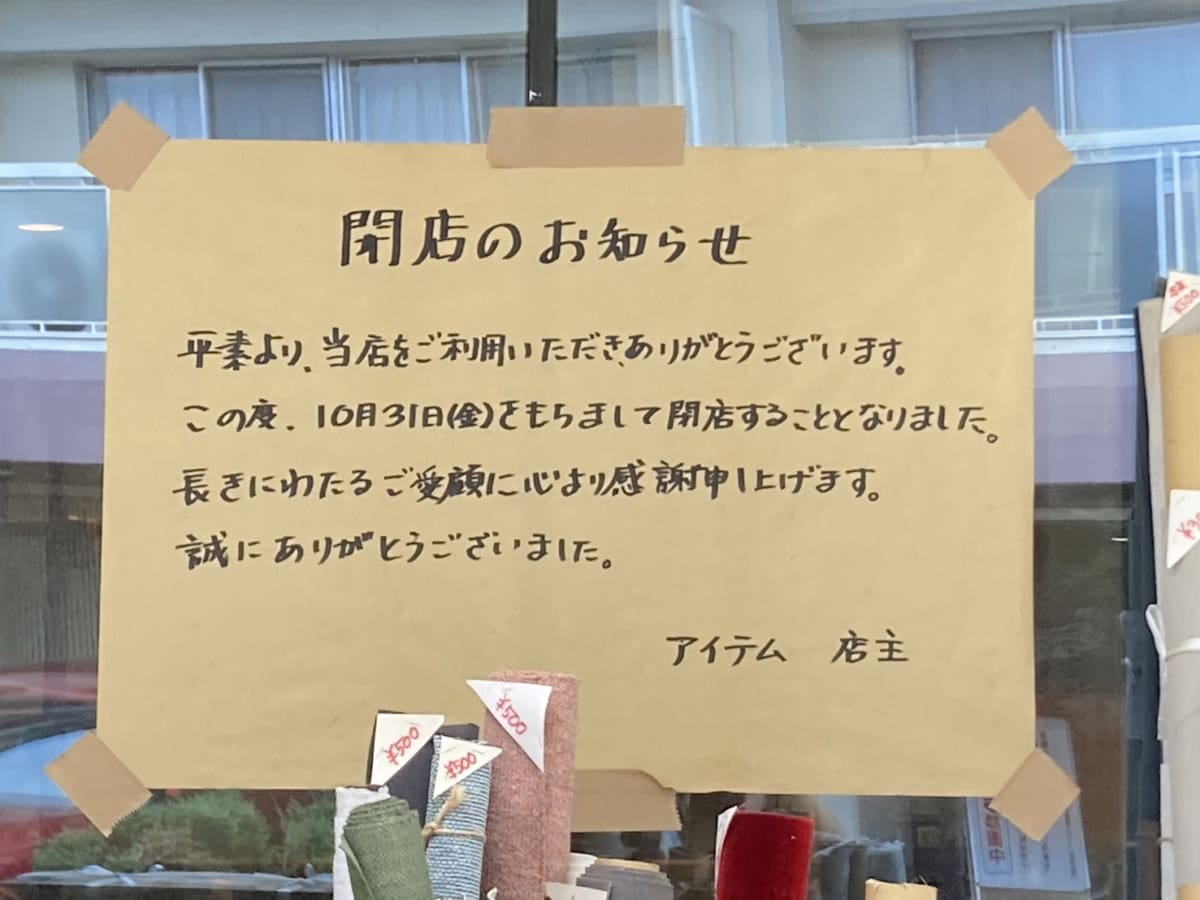 閉店のお知らせ
平素より、当店をご利用いただき、ありがとうございます。
この度、10月31日(金)をもちまして閉店することとなりました。
長きにわたるご愛顧に心より感謝申し上げます。
誠にありがとうございました。
アイテム 店主
¥500
¥500
¥500
¥500